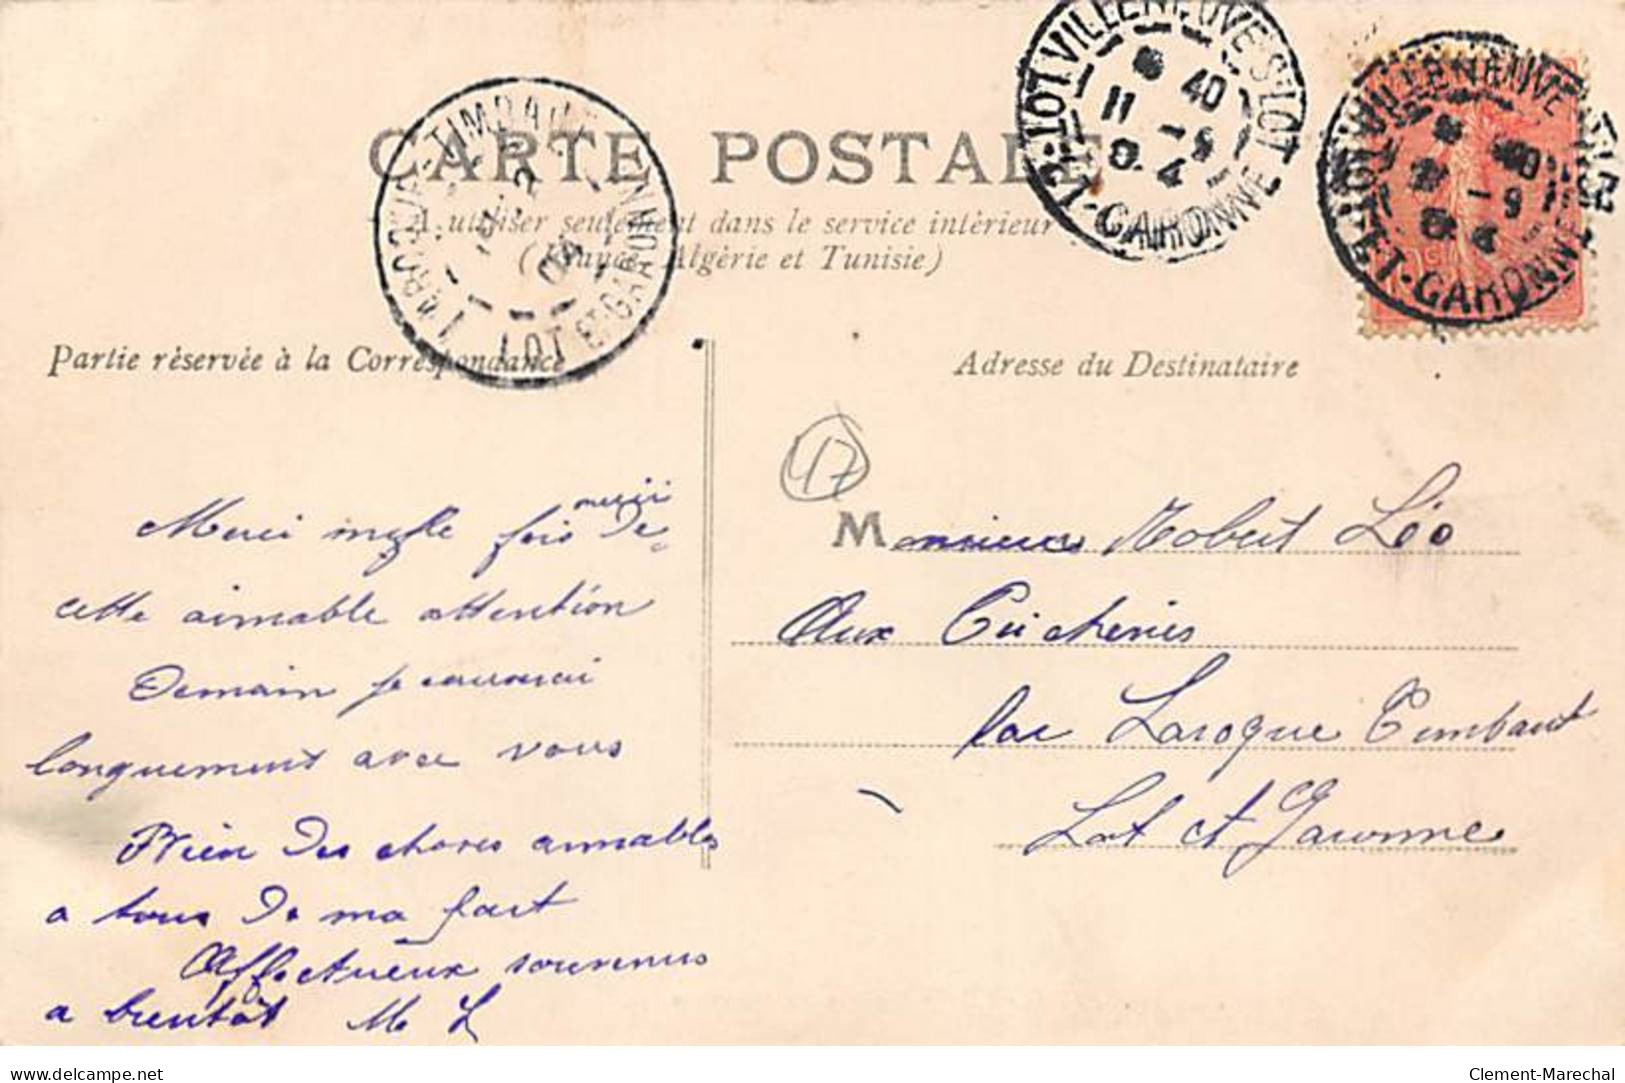 CARTE POSTALE
A utiliser seulement dans le service intérieur
(France, Algérie et Tunisie)
LAROQUE-TIMBAUT
04
LOT ET GARONNE
VILLENEUVE-S-LOT
40
11 -9
04
LOT-ET-GARONNE
VILLENEUVE
40
-9
LOT-ET-GARONNE
Partie réservée à la Correspondance
Merci mille fois merci de
cette aimable attention
Demain je causerai
longuement avec vous
Bien des choses aimables
a tous de ma part
Affectueux souvenirs
a bientôt M L
Adresse du Destinataire
17
Monsieur Robert Léo
Aux
par Laroque Timbaut
Lot et Garonne
delcampe.net
Clement-Marechal